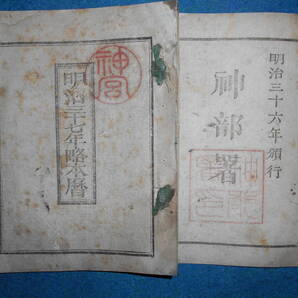 神宮
明治三十七年略本暦
明治三十六年頒行
神部署